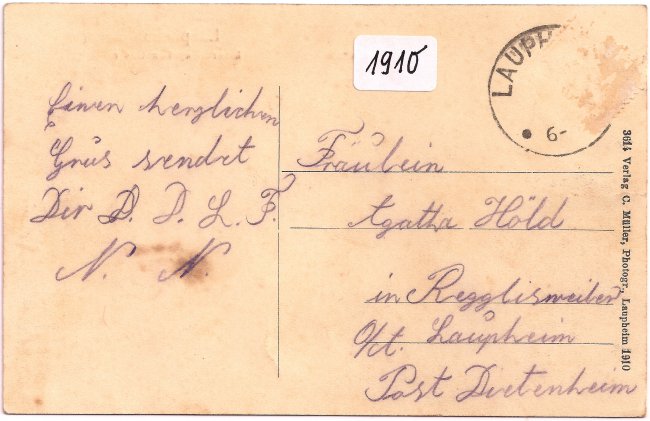 1910
LAUPH
6-
Einen herzlichen
Grus sendet
Dir D. D. L. F.
N. N.
Fräulein
Agatha Höld
in Regglisweiler
O/ct. Laupheim
Post Dietenheim
3614 Verlag C. Müller, Photogr., Laupheim 1910